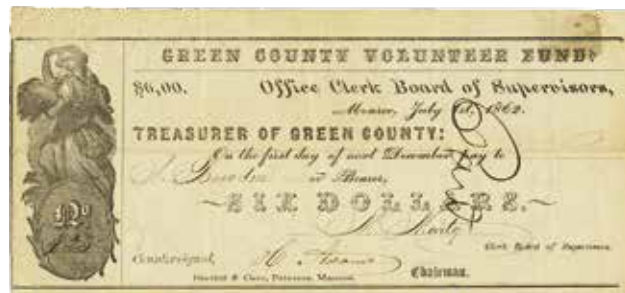 GREEN COUNTY VOLUNTEER FUND:
$6,00. Office Clerk Board of Supervisors,
Monroe, July 1st, 1862.
TREASURER OF GREEN COUNTY:
On the first day of next December, pay to
or Bearer,
~SIX DOLLARS.~
Clerk Board of Supervisors.
No
Countersigned,
Chairman.
Printers, Monroe.
Paid